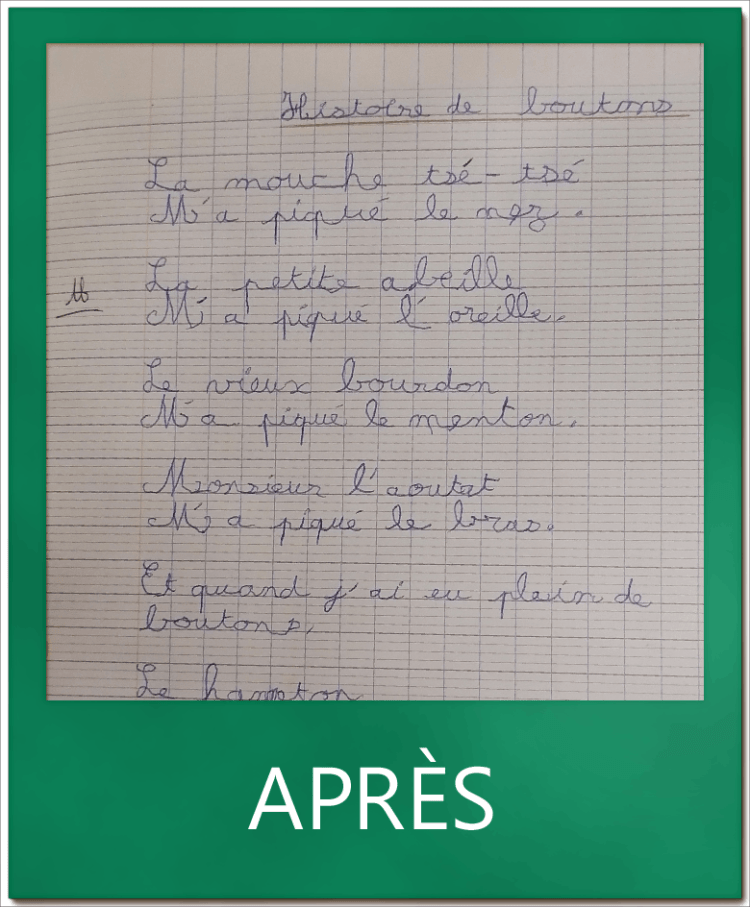 Histoire de boutons
La mouche tsé-tsé
M'a piqué le nez.
La petite abeille
M'a piqué l'oreille.
Le vieux bourdon
M'a piqué le menton.
Monsieur l'aoutat
M'a piqué le bras.
Et quand j'ai eu plein de
boutons,
Le
APRÈS